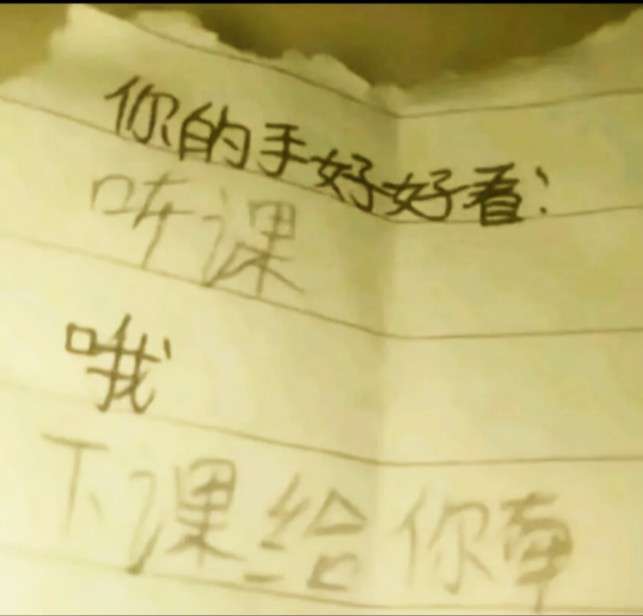 你的手好好看!
听课
哦
下课给你牵